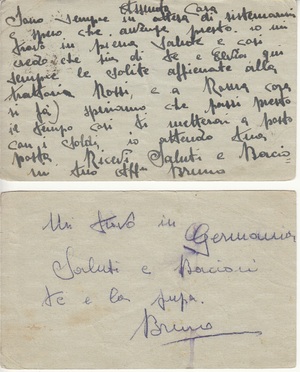 Assunta Cara
Sono sempre in attesa di sistemarmi
E spero che avenga presto. io mi
trovo in piena Salute e così
credo che sia di te e
sempre le solite affienate alla
trattoria Rossi, e a Roma cosa
si fà) speriamo che passi presto
il tempo così ti metterai a posto
con i soldi. io attendo tua
posta Ricevi Saluti e Bacio
tuo Aff
Bruno
Mi trovo in Germania
Saluti e Bacioni
te e la
Bruno